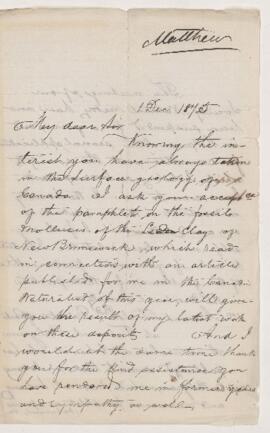 Matthew
1 Dec 1875
My dear Sir Knowing the in-
terest you have always taken
in the surface geology of
Canada I ask your acceptance
of the pamphlet on the fossil
Mollusca of the Leda Clay of
New Brunswick, which read
in connection with an article
published for me in the Canadn
Naturalist of this year, will give
you the results of my latest work
on these deposits And I
would at the same time thank
you for the kind assistance you
have rendered me in former years
and sympathy as well.